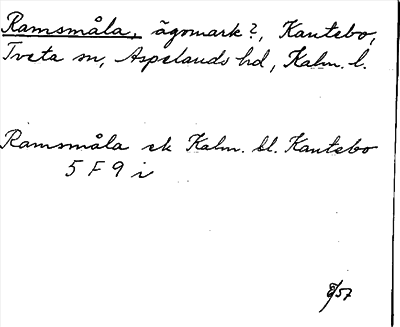 Ramsmåla, ägomark?, Kantebo,
Tveta sn, Aspelands hd, Kalm. l.
Ramsmåla ek Kalm. bl. Kantebo
5 F 9 i
8/57